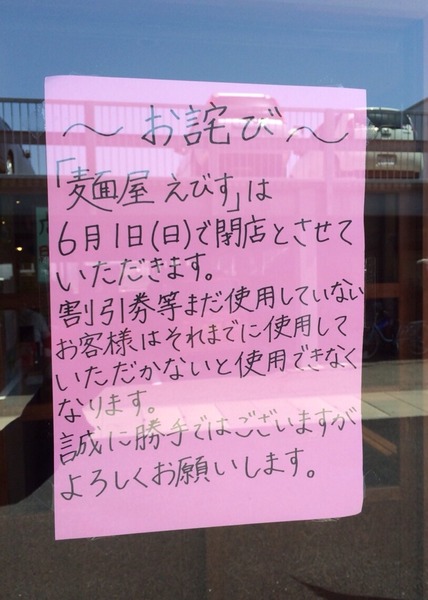 〜お詫び〜
「麺屋 えびす」は
6月1日(日)で閉店とさせて
いただきます。
割引券等まだ使用していない
お客様はそれまでに使用して
いただかないと使用できなく
なります。
誠に勝手ではございますが
よろしくお願いします。